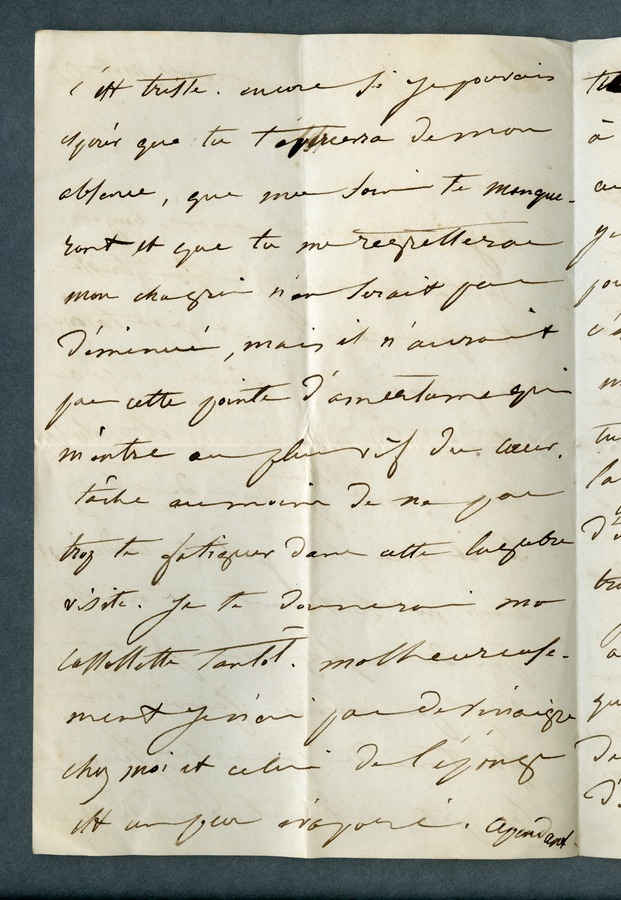 c'est triste. encore si je pouvais
espérer que tu t'appercevra de mon
absence, que mes soins te manque-
ront et que tu me regretteras
mon chagrin n'en serait pas
diminué, mais il n'aurait
pas cette pointe d'amertume qui
m'entre au plus vif du cœur.
tâche au moins de ne pas
trop te fatiguer dans cette lugubre
visite. Je te donnerai ma
cassollette tantôt. malheureuse-
ment je n'ai pas de vinaigre
chez moi et celui de l'éponge
est un peu évaporé. Cependant